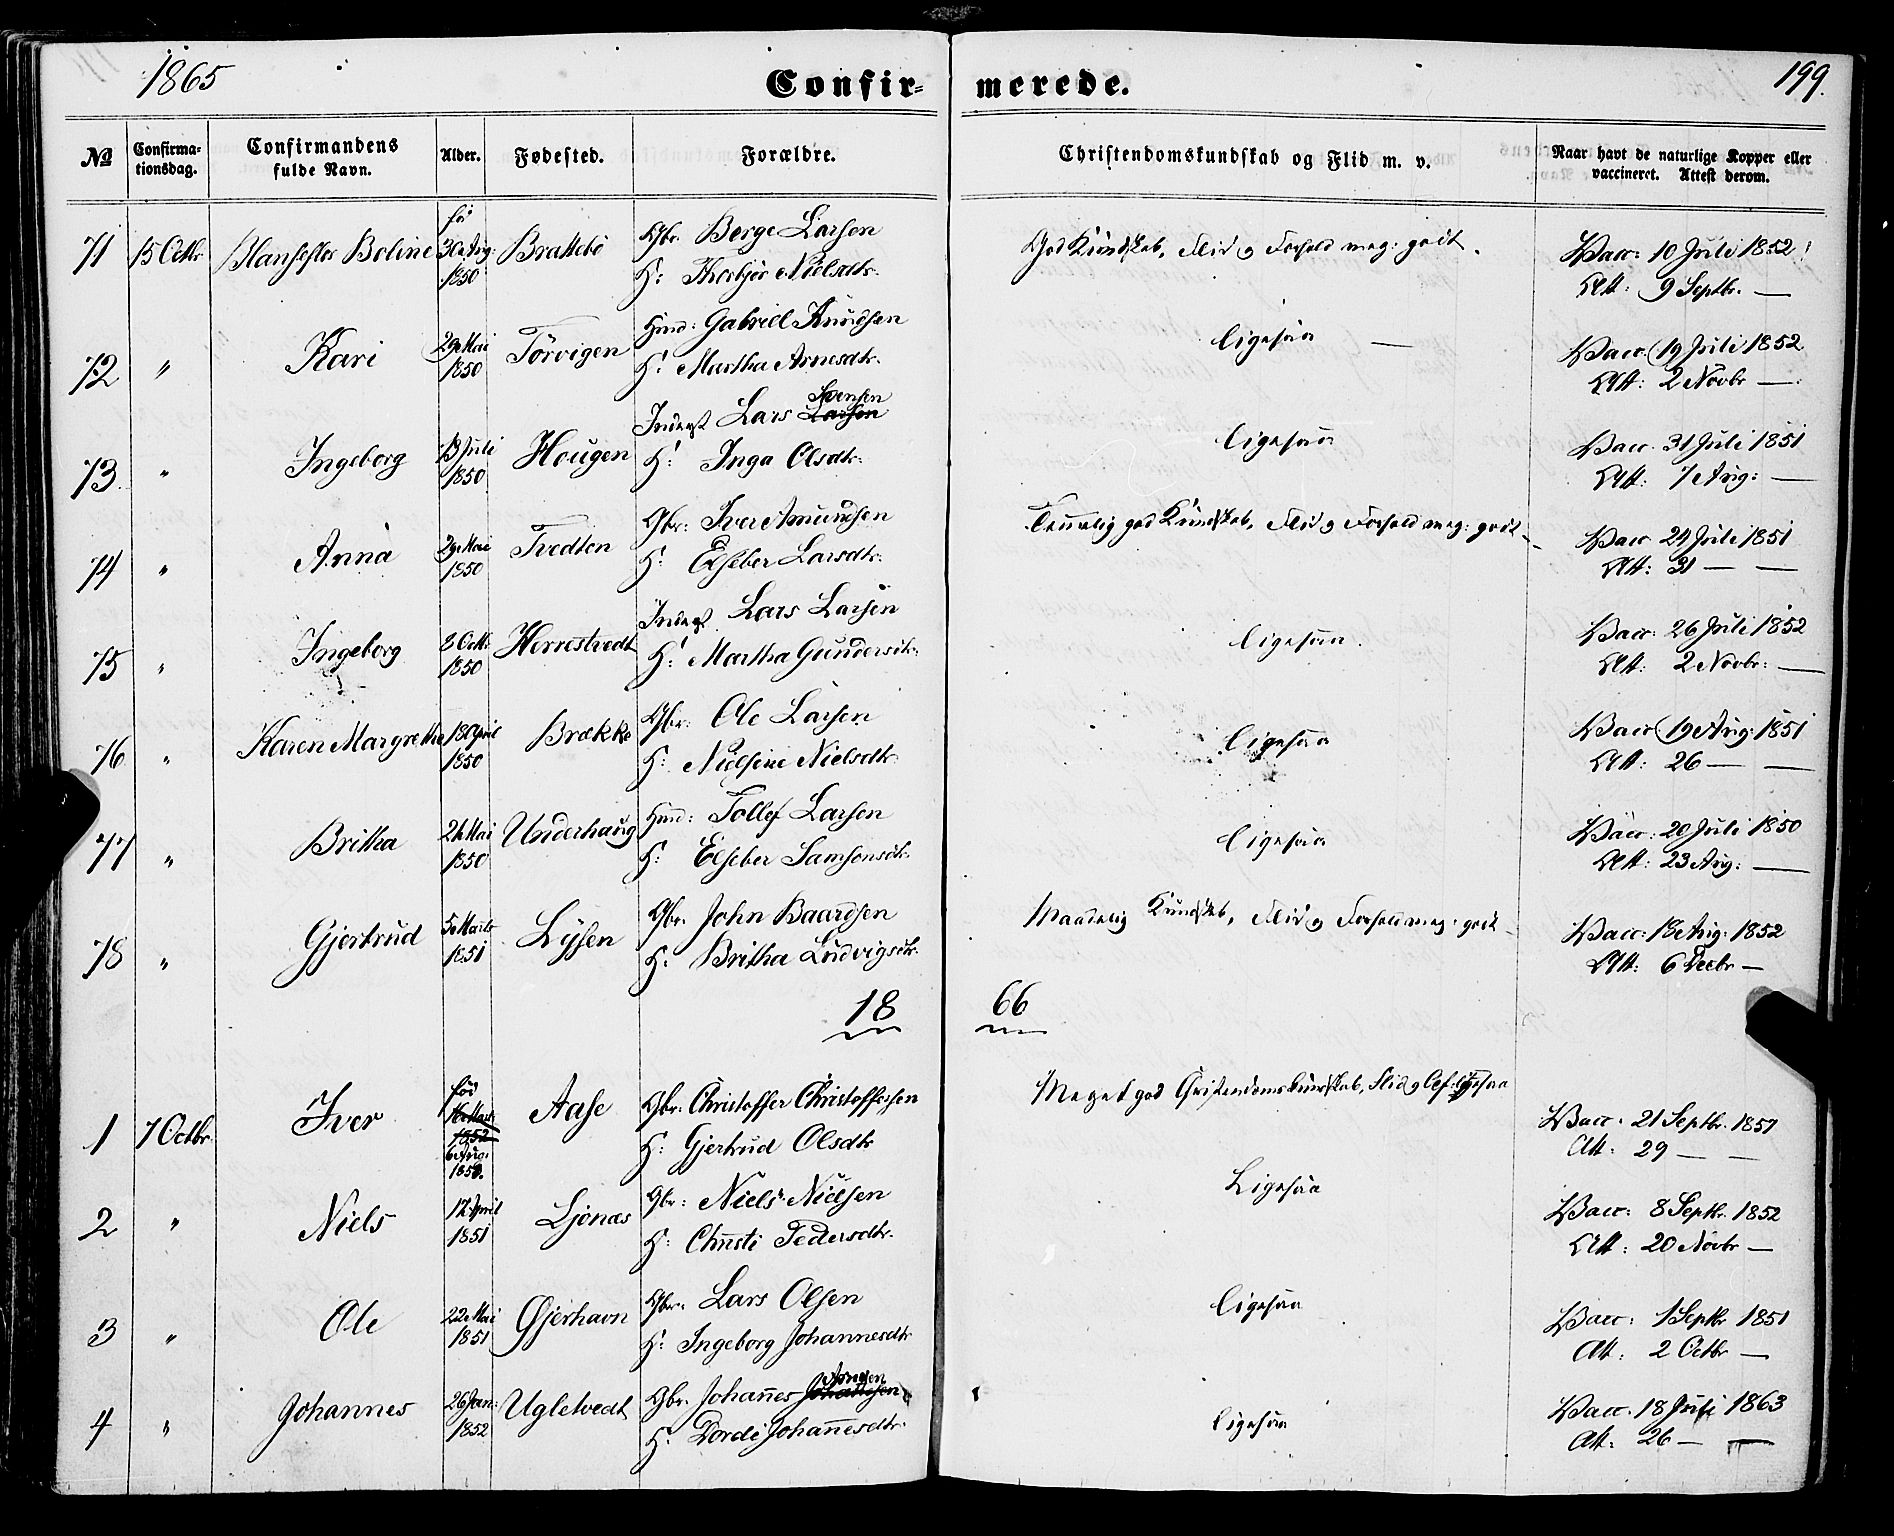 1865
Confir=
merede.
199.
№
Confirma-
tionsdag.
Confirmandens
fulde Navn.
Alder.
Fødested.
Forældre.
Christendomskundskab og Flid m. v.
Naar havt de naturlige Kopper eller
vaccineret. Attest derom.
71 15 Octbr Boline Brattebö Gbr. Berge Larsen God Kundskab, Flid og Forhold meg: godt. Vacc: 10 Juli 1852
1850 H: Nielsdtr. Att: 9 Septbr. —
72 " Kari 29 Mai Törvigen Gabriel Knudsen Ligesaa — Vacc 19 Juli 1852
1850 H: Martha Arnesdtr. Att: 2 Novbr —
73 " Ingeborg 13 Juli Hougen Inderst Lars Larsen Svensen Ligesaa Vacc 31 Juli 1851
1850 H: Inga Olsdtr. Att: 7 Aug: —
74 " Anna 29 Mai Tvedten Gbr: Iver Amundsen Temmelig god Kundskab, Flid og Forhold meg: godt — Vacc 24 Juli 1851
1850 H: Elseber Larsdtr. Att: 31 — —
75 " Ingeborg 8 Octbr Herrestvedt Inderst Lars Larsen Ligesaa. Vacc: 26 Juli 1852
1850 H: Martha Gundersdtr. Att: 2 Novbr: —
76 " Karen Margrethe 18 April Brække Gbr: Ole Larsen Ligesaa Vacc 19 Aug: 1851
1850 H: Nielsine Nielsdtr. Att: 26 — —
77 " Britha Mai Underhaug Hmd: Tollef Larsen Ligesaa Vacc: 20 Juli 1850
1850 H: Elseber Samsonsdtr. Att: 23 Aug: —
78 " Gjertrud 5 Marts Lÿsen Gbr. John Baardsen Maadelig Kundskab, Flid og Forhold meg: godt — Vacc: 18 Aug: 1852
1851 H: Britha Ludvigsdtr. Att: 6 Decbr —
18 66
1 7 Octbr. Iver född Aase Gbr: Christoffer Christoffersen Meget god Christendomskundskab, Flid og ligesaa Vacc: 21 Septbr. 1851
1852 6 Aug: 1850. H: Gjertrud Olsdtr Att: 29 — —
2 " Niels 12 April Ljönæs Gbr: Niels Nielsen Ligesaa Vacc: 8 Septbr. 1852
1851 H: Christi Pedersdtr. Att: 20 Novbr —
3 " Ole 22 Mai Gjerhavn Gbr: Lars Olsen Ligesaa Vacc: 1 Septbr 1851
1851 H: Ingeborg Johannesdtr Att: 2 Octbr —
4 " Johannes 26 Jan: Ugletvedt Gbr. Johannes Johannesen Ligesaa Vacc. 18 Juli 1863
1852 H: Dordi Johannesdtr. Att: 26 — —